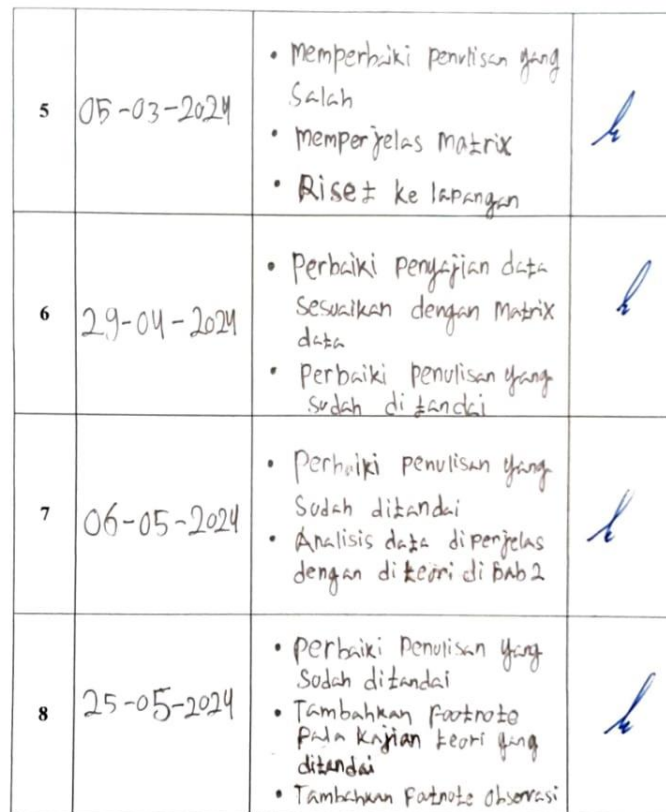 5
05-03-2024
• Memperbaiki penulisan yang
Salah
• Memperjelas Matrix
• Riset ke lapangan
6
29-04-2024
• Perbaiki penyajian data
Sesuaikan dengan Matrix
data
• Perbaiki penulisan yang
sudah di tandai
7
06-05-2024
• Perbaiki penulisan yang
Sudah ditandai
• Analisis data diperjelas
dengan di teori di Bab 2
8
25-05-2024
• Perbaiki Penulisan yang
Sudah ditandai
• Tambahkan Footnote
pada Kajian teori yang
ditandai
• Tambahkan Fotnote Observasi